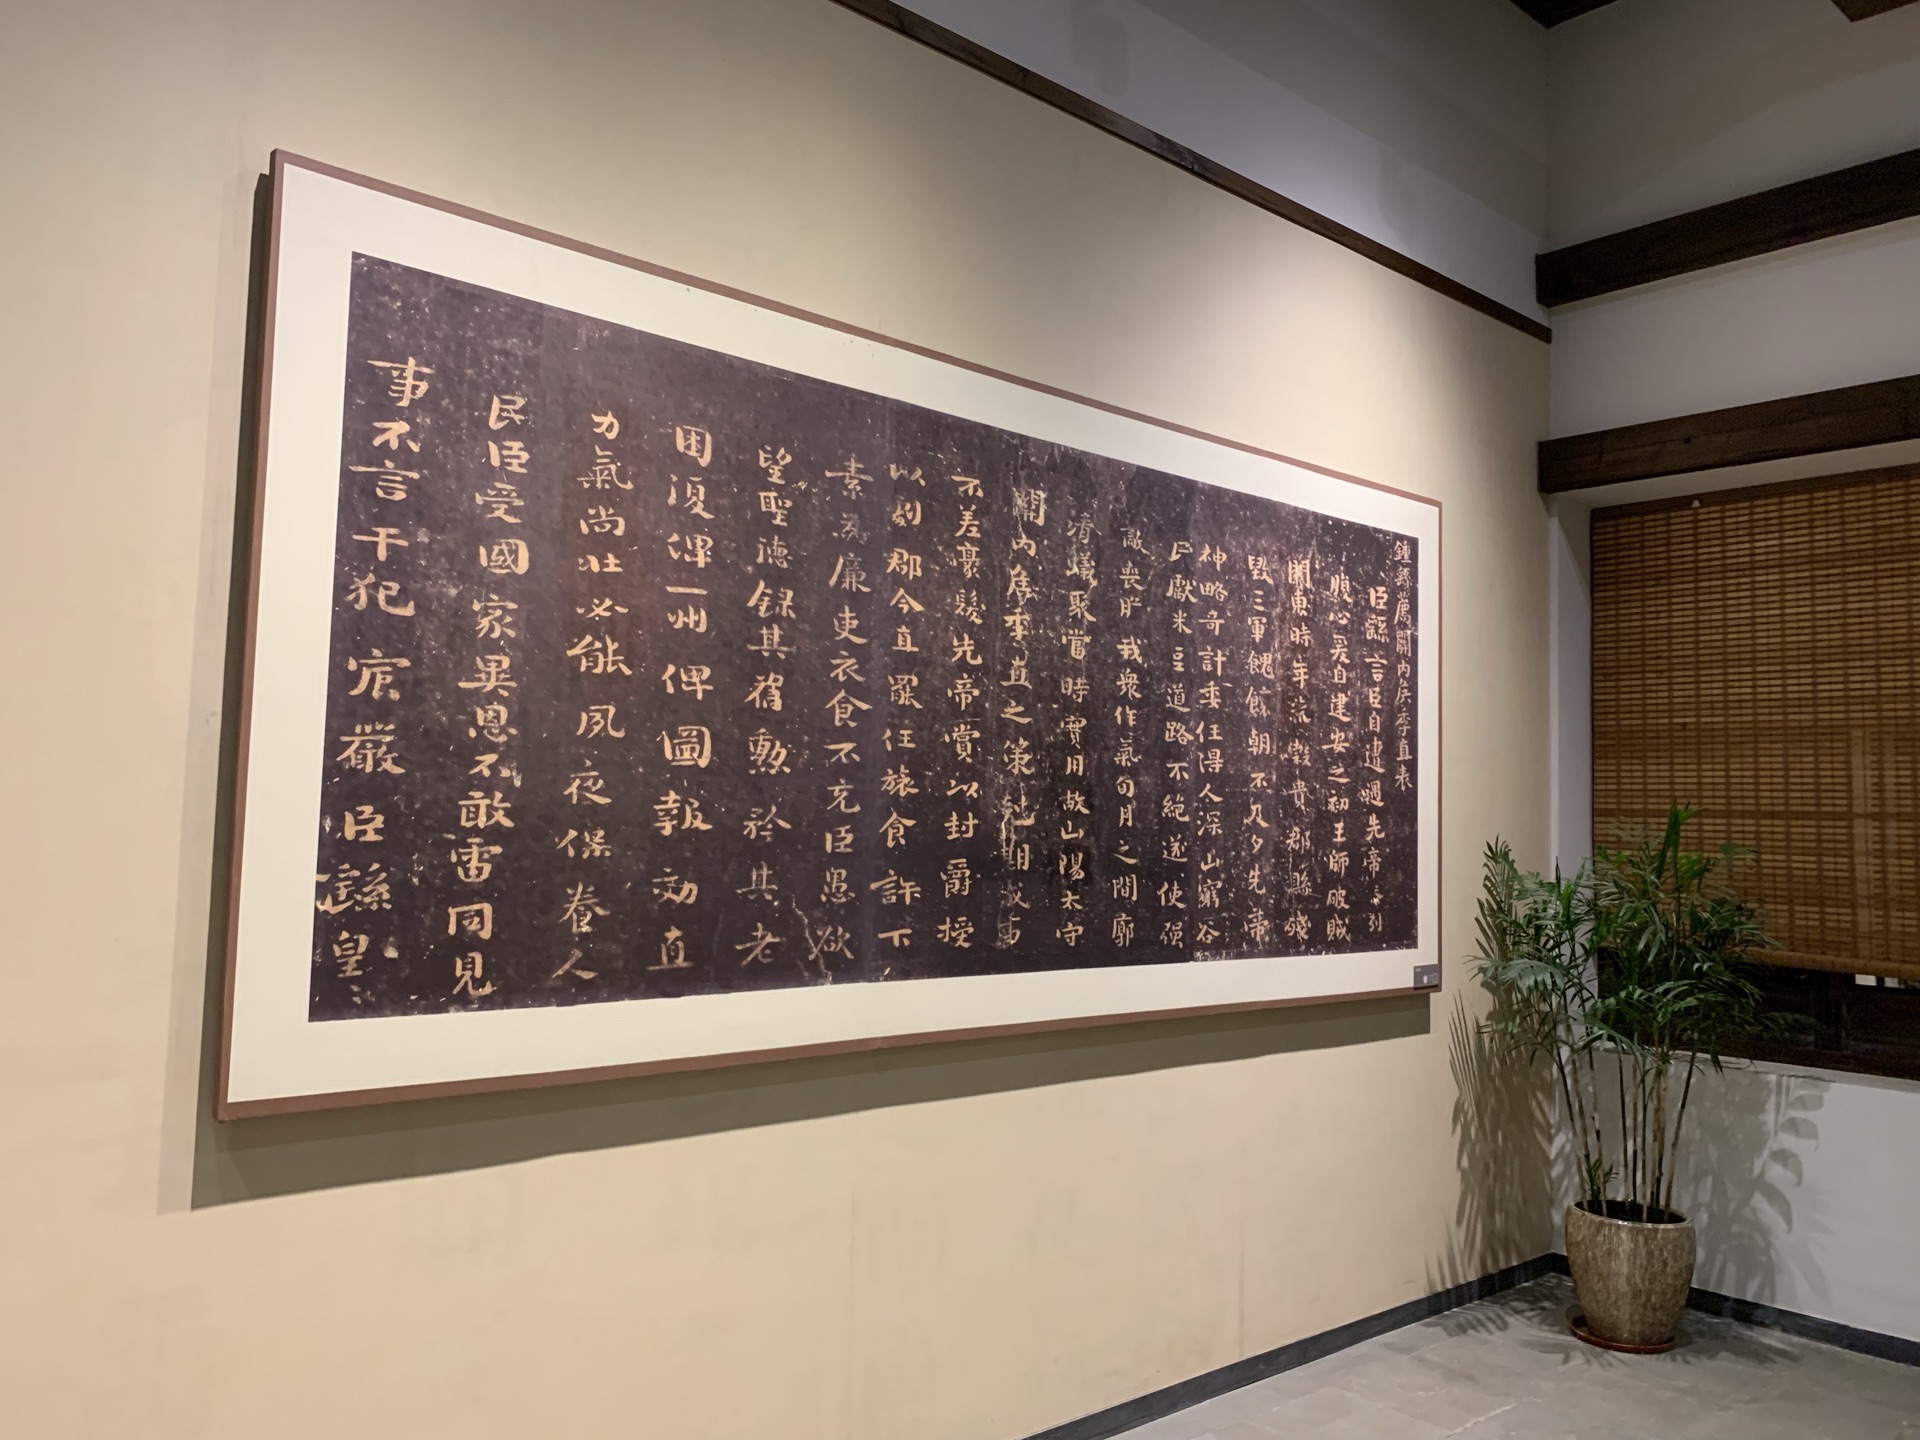 鍾繇薦關內侯季直表
臣繇言臣自遭遇先帝忝列
腹心爰自建安之初王師破賊
關東時年荒穀貴郡縣殘
毀三軍餽饟朝不及夕先帝
神略奇計委任得人深山窮谷
民獻米豆道路不絕遂使强
敵喪膽我衆作氣旬月之間廓
清蟻聚當時實用故山陽太守
關內侯季直之策剋期成事
不差豪髮先帝賞以封爵授
以劇郡今直罷任旅食許下
素為廉吏衣食不充臣愚欲
望聖德錄其舊勳矜其老
困復俾一州俾圖報効直
力氣尚壯必能夙夜保養人
民臣受國家異恩不敢雷同見
事不言干犯宸嚴臣繇皇